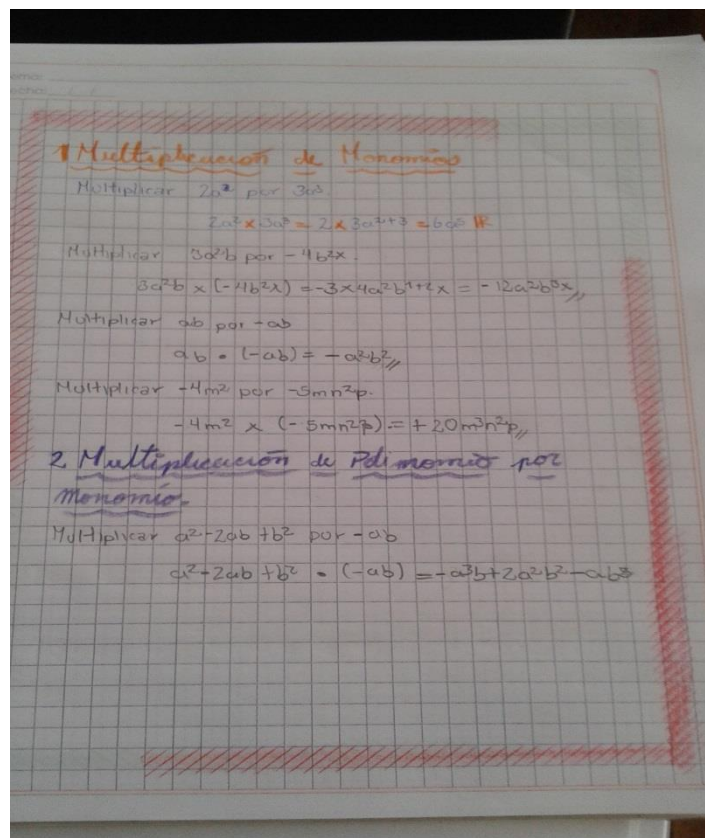 1 Multiplicación de Monomios
Multiplicar 2a² por 3a³
2a² x 3a³ = 2 x 3a²⁺³ = 6a⁵ R
Multiplicar 3a²b por -4b²x.
3a²b x (-4b²x) = -3x4a²b¹⁺²x = -12a²b³x
Multiplicar ab por -ab
ab • (-ab) = -a²b²
Multiplicar -4m² por -5mn²p.
-4m² x (-5mn²p) = +20m³n²p
2 Multiplicación de Polinomio por
monomio.
Multiplicar a²-2ab+b² por -ab
a²-2ab+b² • (-ab) = -a³b+2a²b²-ab³